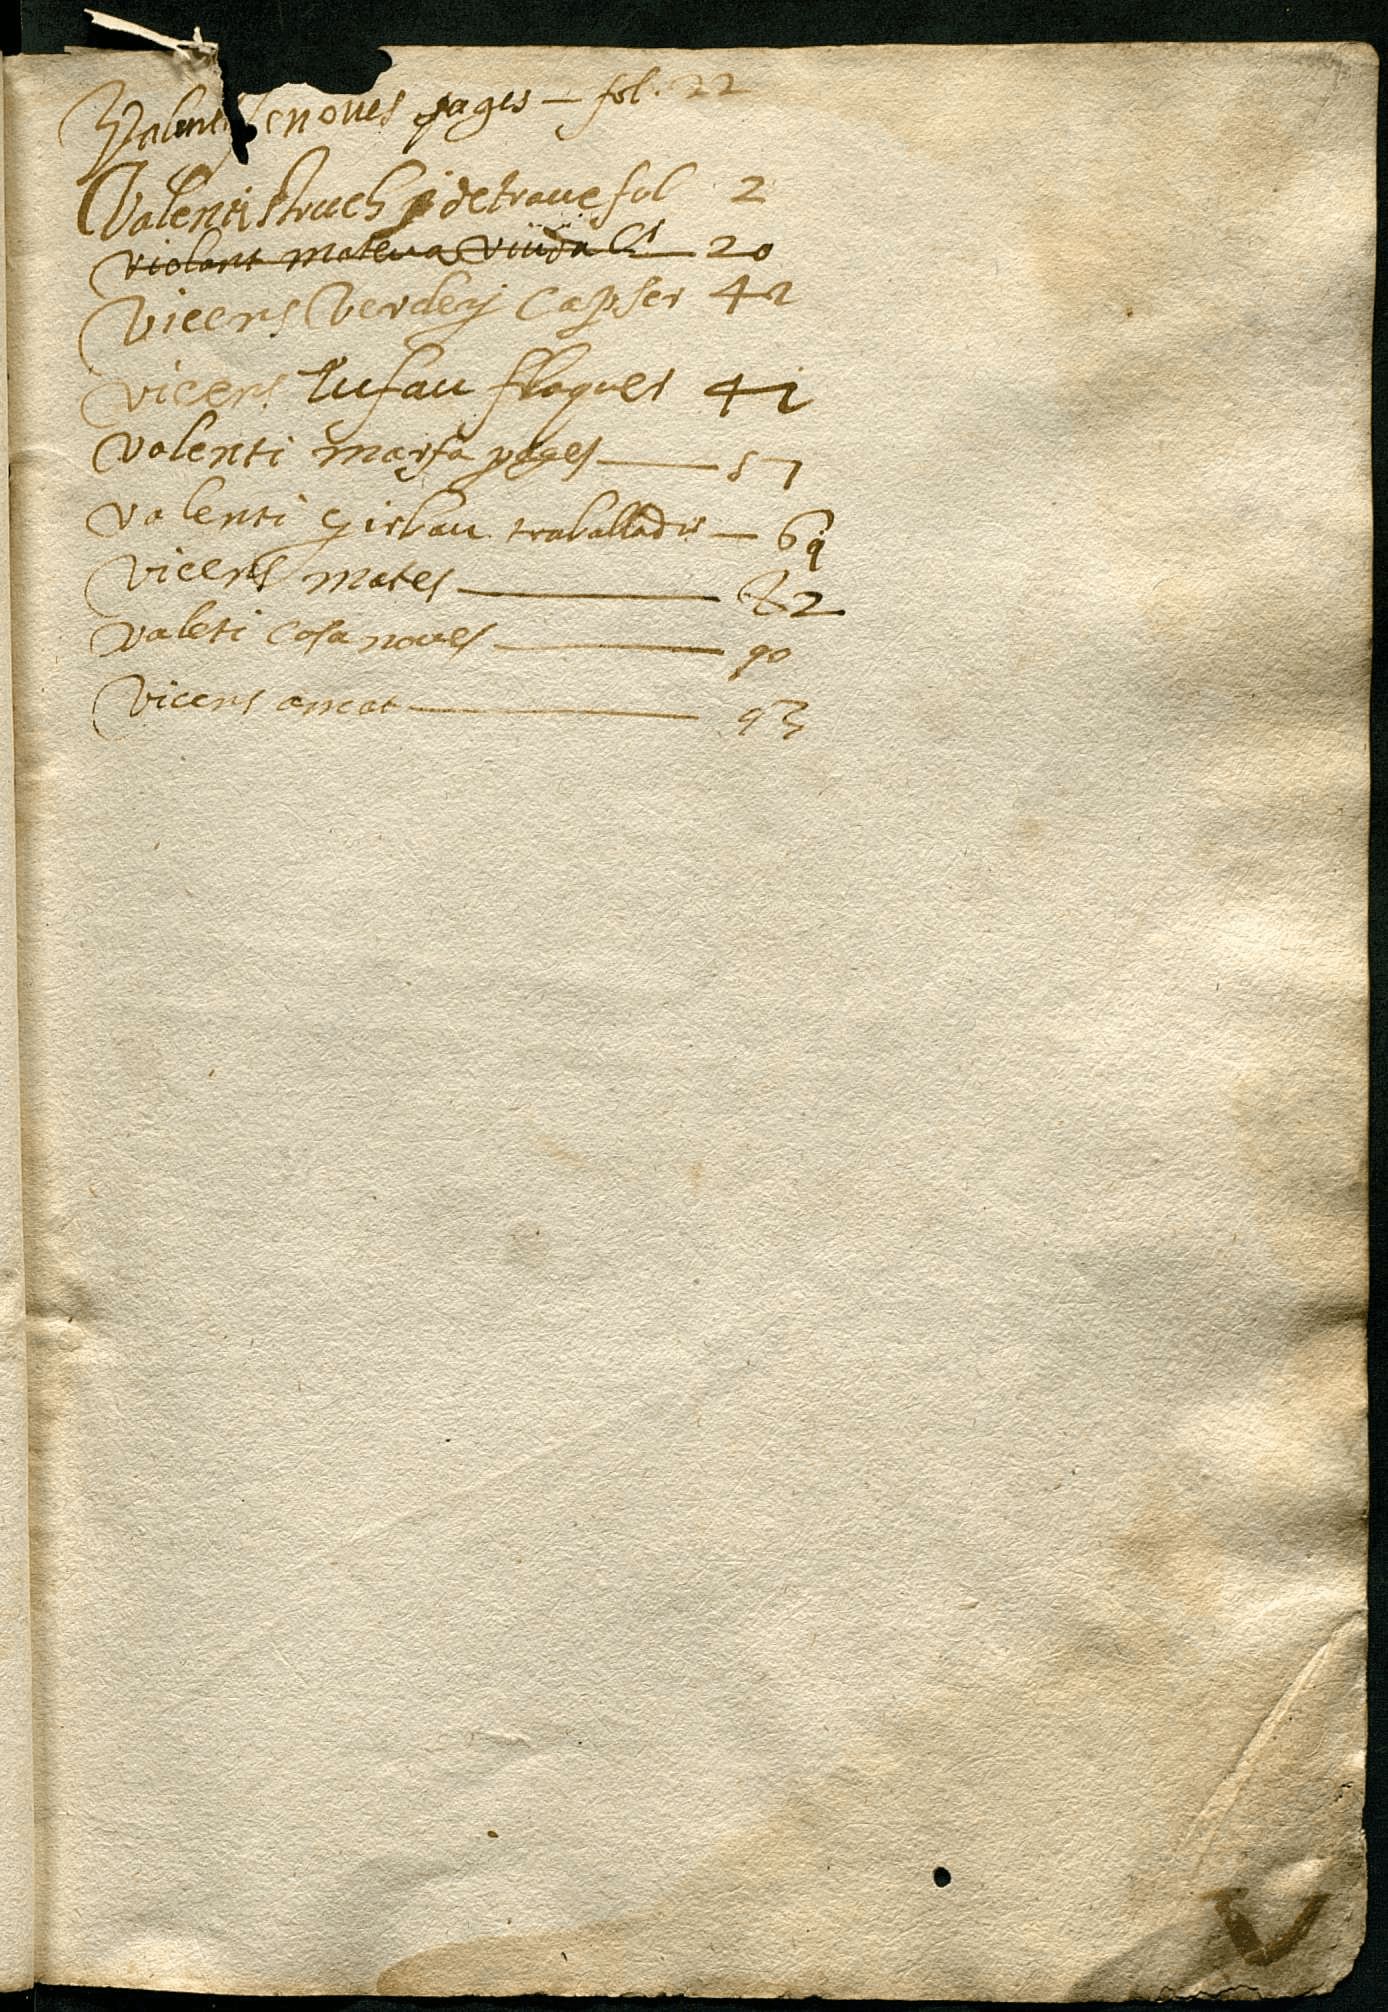 Valenti enoves pages — fol. 22
Valenti struch detrave fol 2
violant mateva viuda 20
Vicens Verdery Capser 42
vicens Tufau flaques 41
valenti marfa pages — 57
valenti girbau traballador — 69
vicens mates — 82
valeti casanoves — 90
vicens amat — 93
V